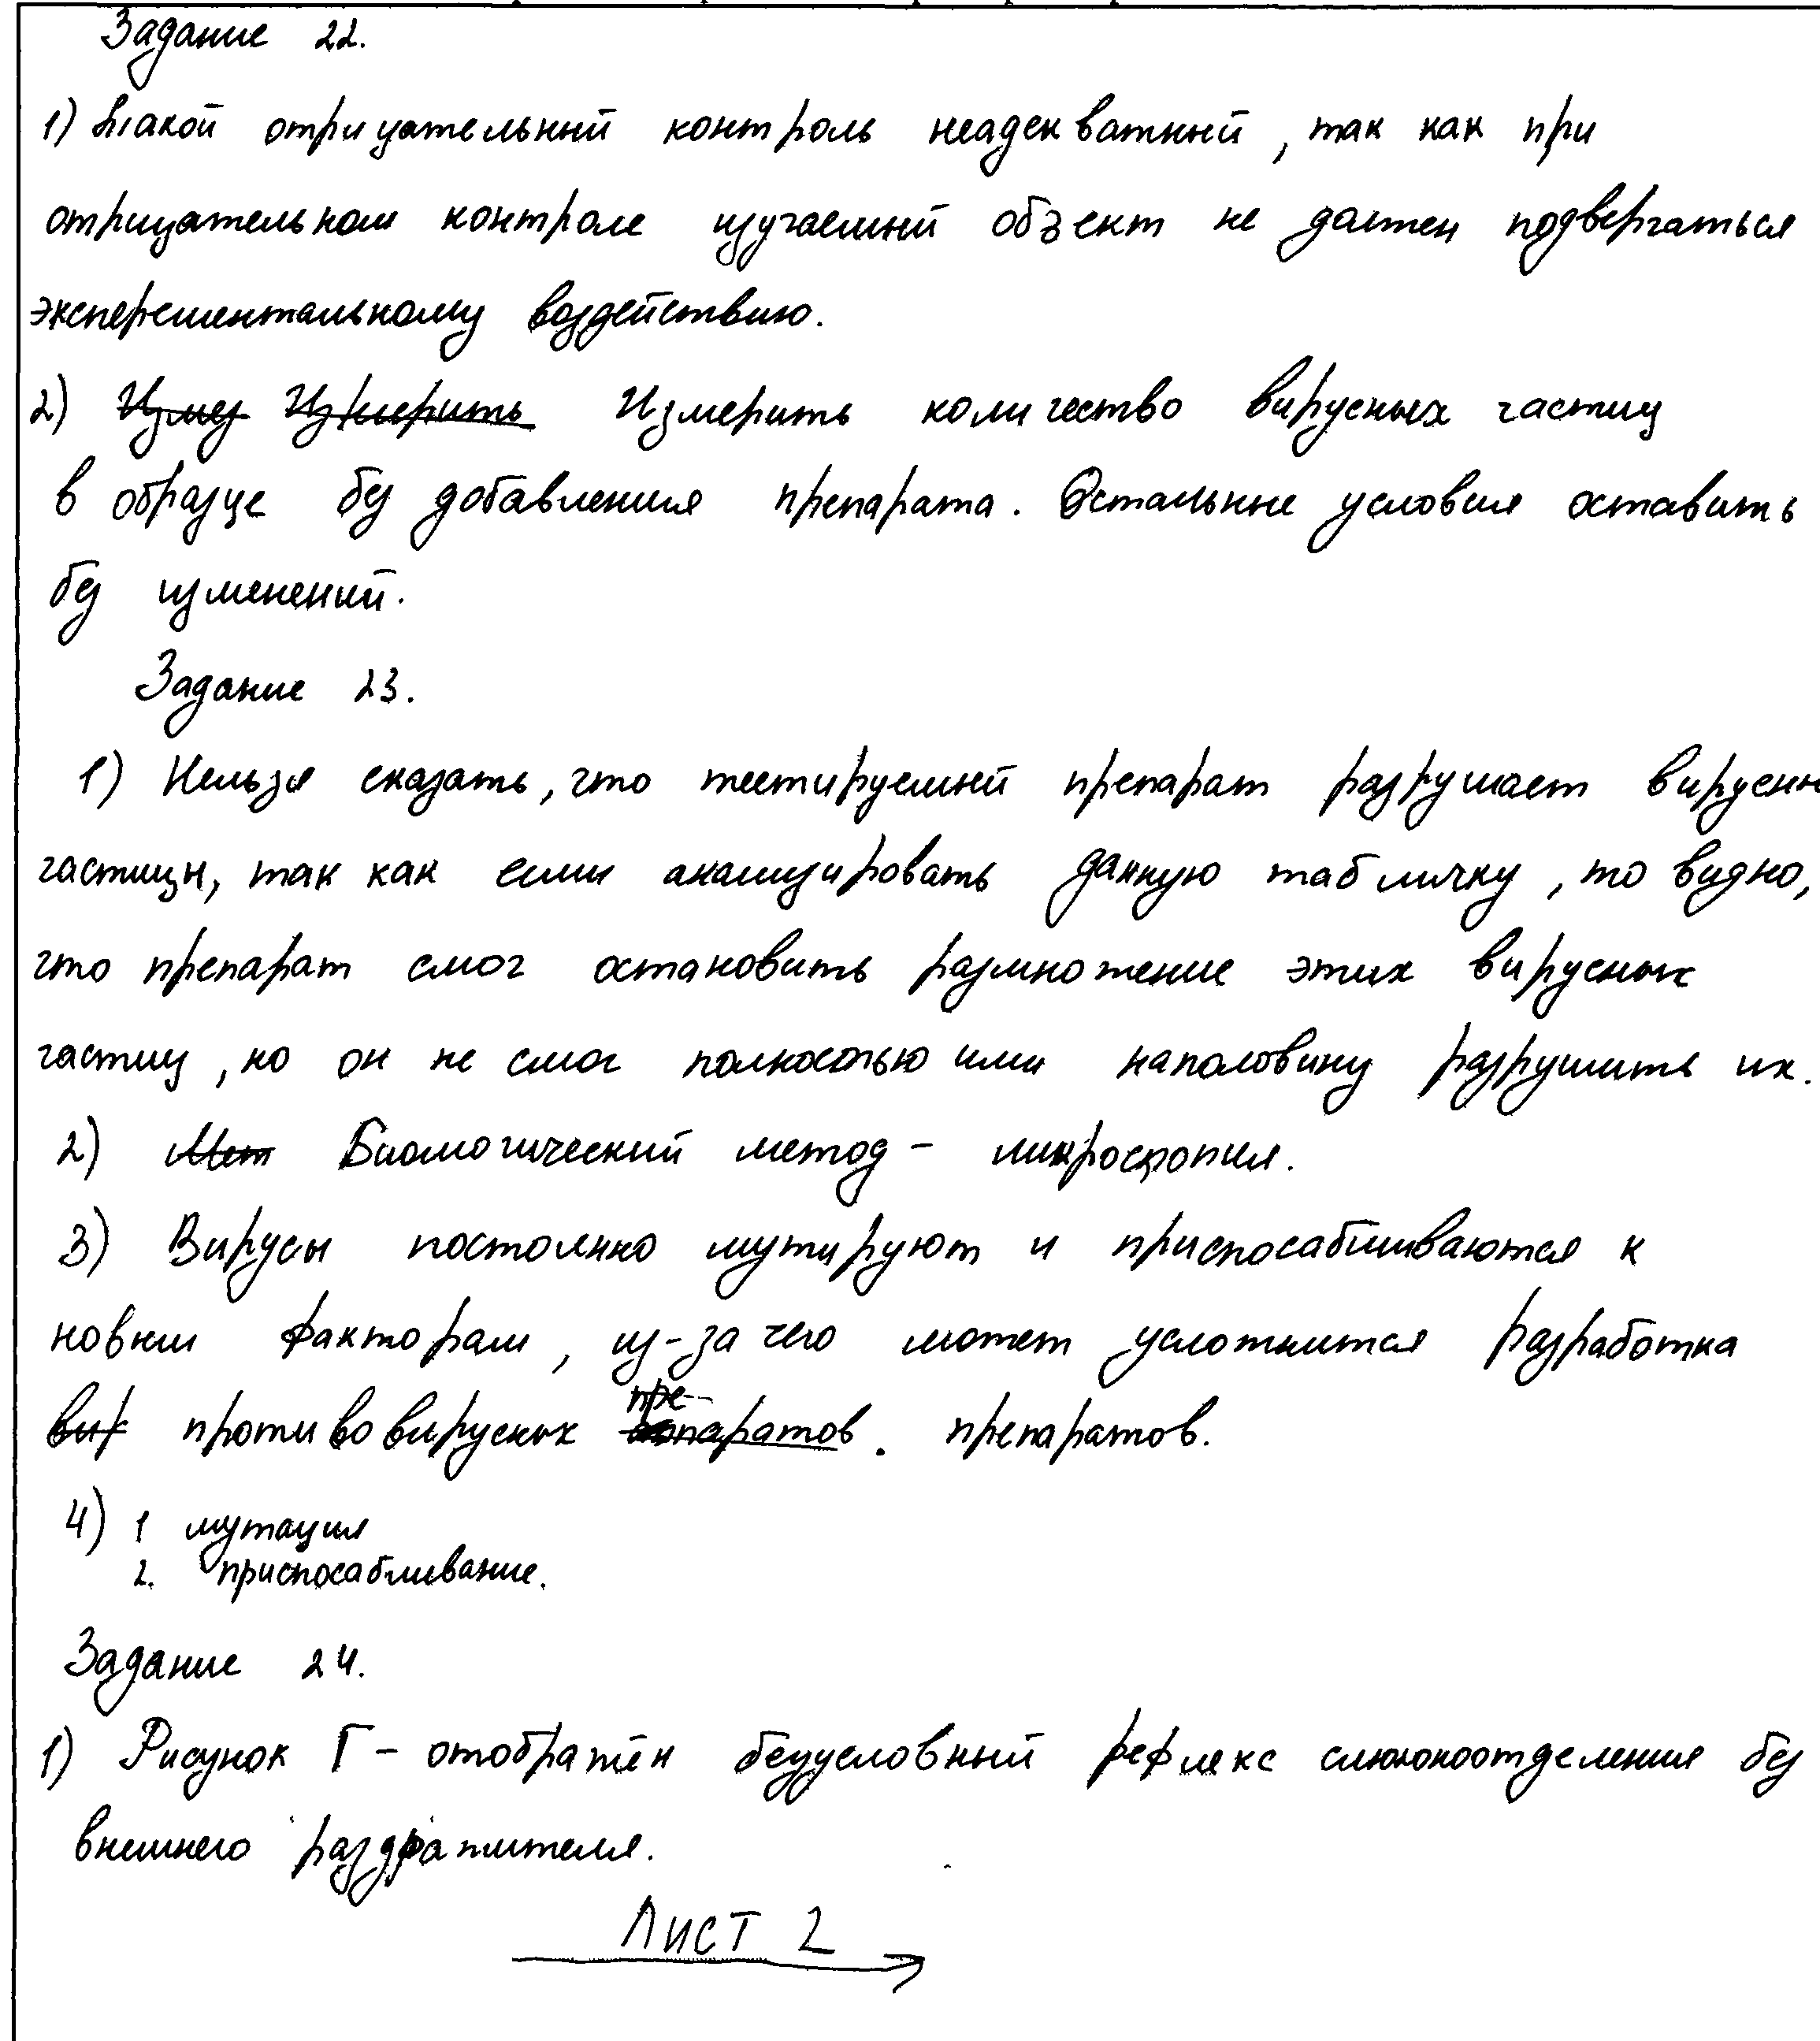 Задание 22.
1) Такой отрицательный контроль неадекватный, так как при
отрицательном контроле изучаемый объект не должен подвергаться
эксперементальному воздействию.
2) Измер Измерить Измерить количество вирусных частиц
в образце без добавления препарата. Остальные условия оставить
без изменений.
Задание 23.
1) Нельзя сказать, что тестируемый препарат разрушает вирусны
частицы, так как если анализировать данную табличку, то видно,
что препарат смог остановить размножение этих вирусных
частиц, но он не смог полностью или наполовину разрушить их.
2) Мет Биологический метод - микроскопия.
3) Вирусы постоянно мутируют и приспосабливаются к
новым факторам, из-за чего может усложнится разработка
вир противовирусных препаратов. препаратов.
4) 1 мутация
2. приспосабливание.
Задание 24.
1) Рисунок Г - отображён безусловный рефлекс слюноотделения без
внешнего раздражителя.
ЛИСТ 2